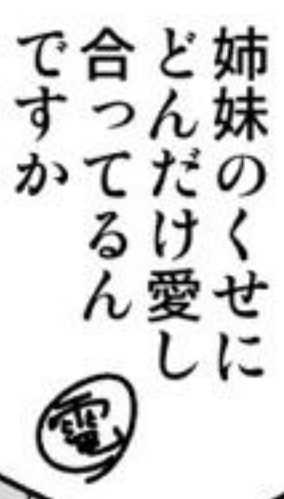 姉妹のくせに
どんだけ愛し
合ってるん
ですか